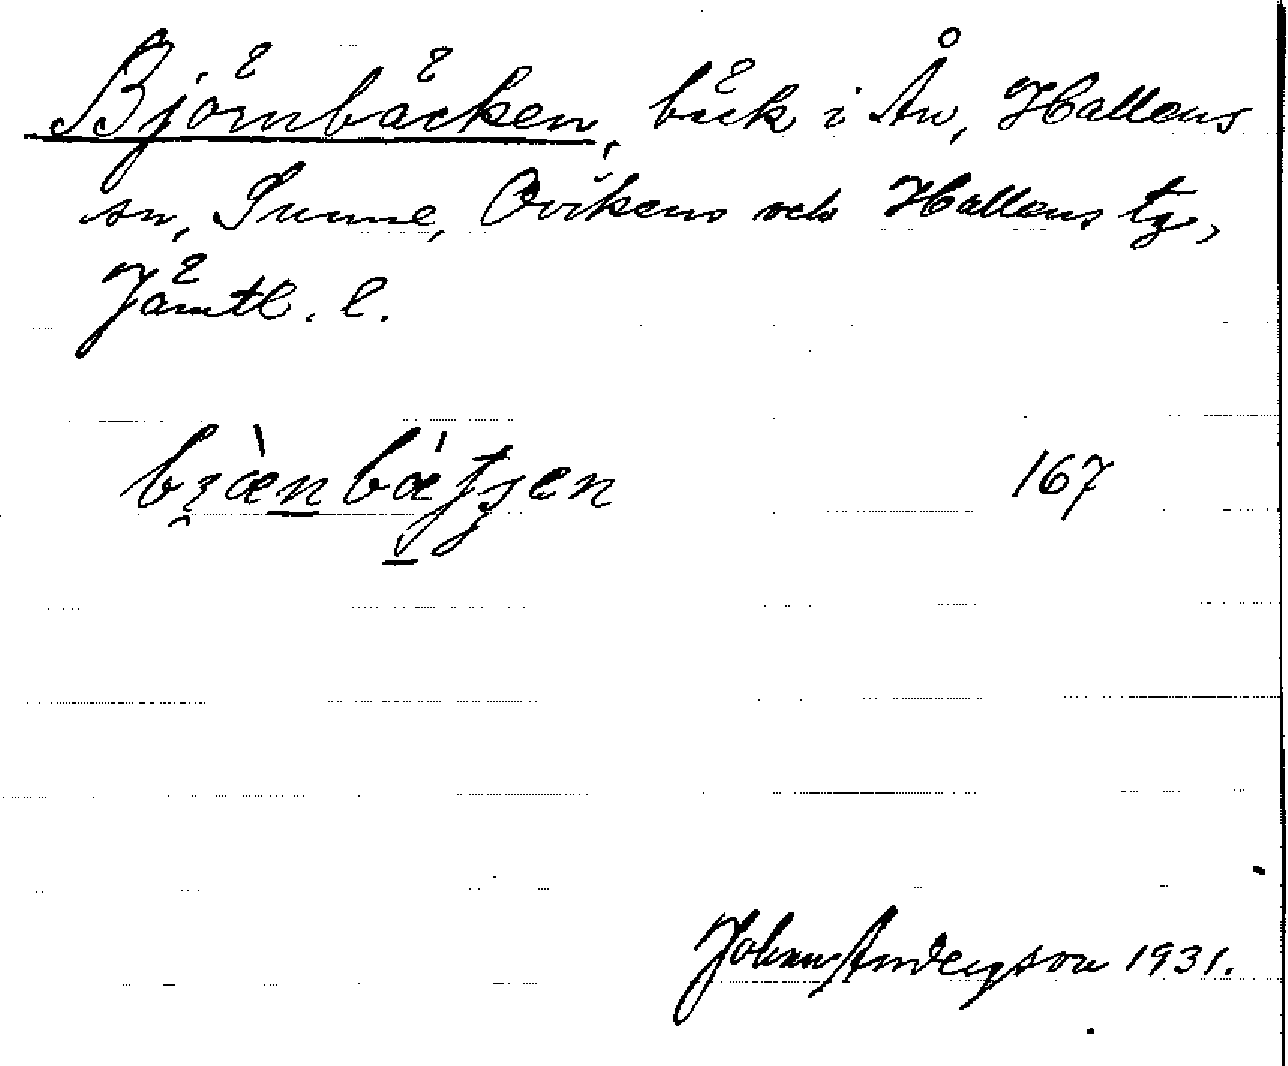 Björnbäcken, bäck i Ån, Hallens
sn, Sunne, Ovikens och Hallens tg,
Jämtl. l.
167
Johan Anderson 1931.